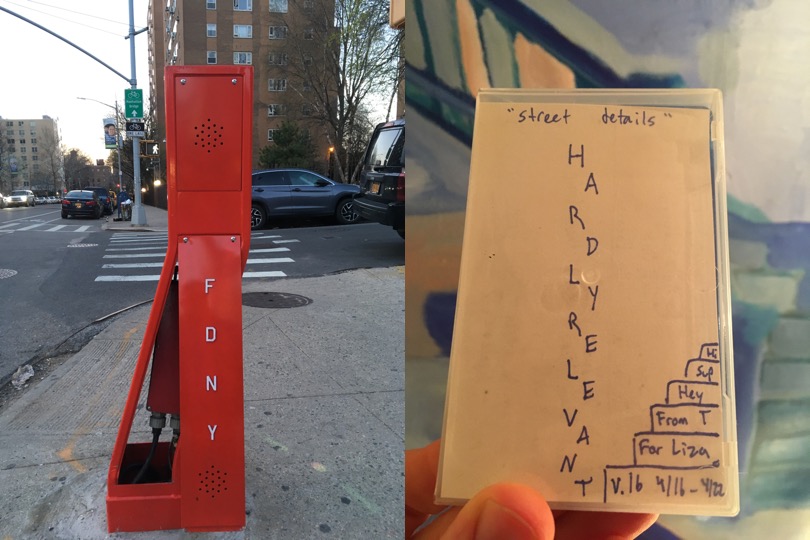 FDNY
"street details"
HARDLYRELEVANT
Hi
Sup
Hey
From T
For Liza
V.16 4/16-4/22